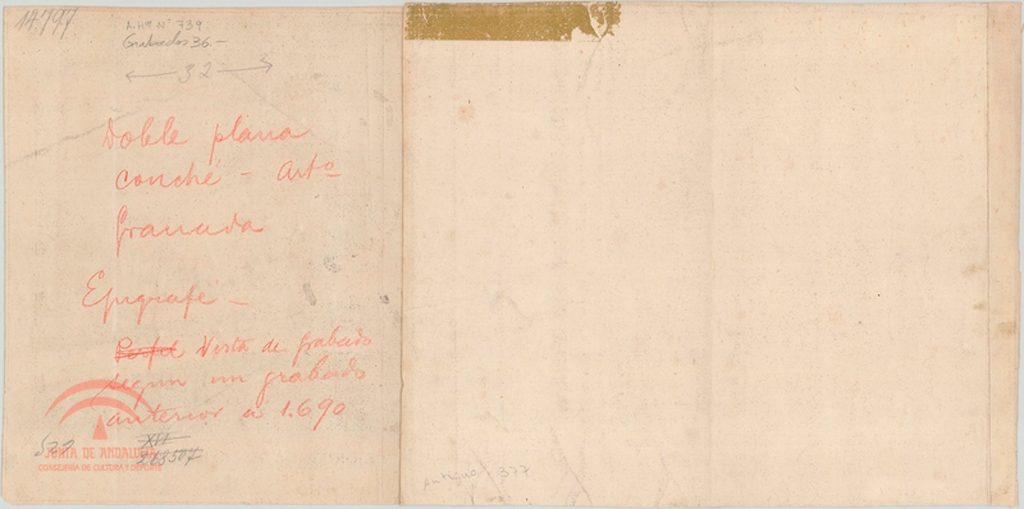 14.797
A.Hº Nº 739
Grabados 36-
32
Doble plana
conché - Artº
Granada
Epígrafe -
Perfil Vista de grabado
segun un grabado
anterior á 1.690
JUNTA DE ANDALUCIA
CONSEJERÍA DE CULTURA Y DEPORTE
XII
263507
Antiguo 377